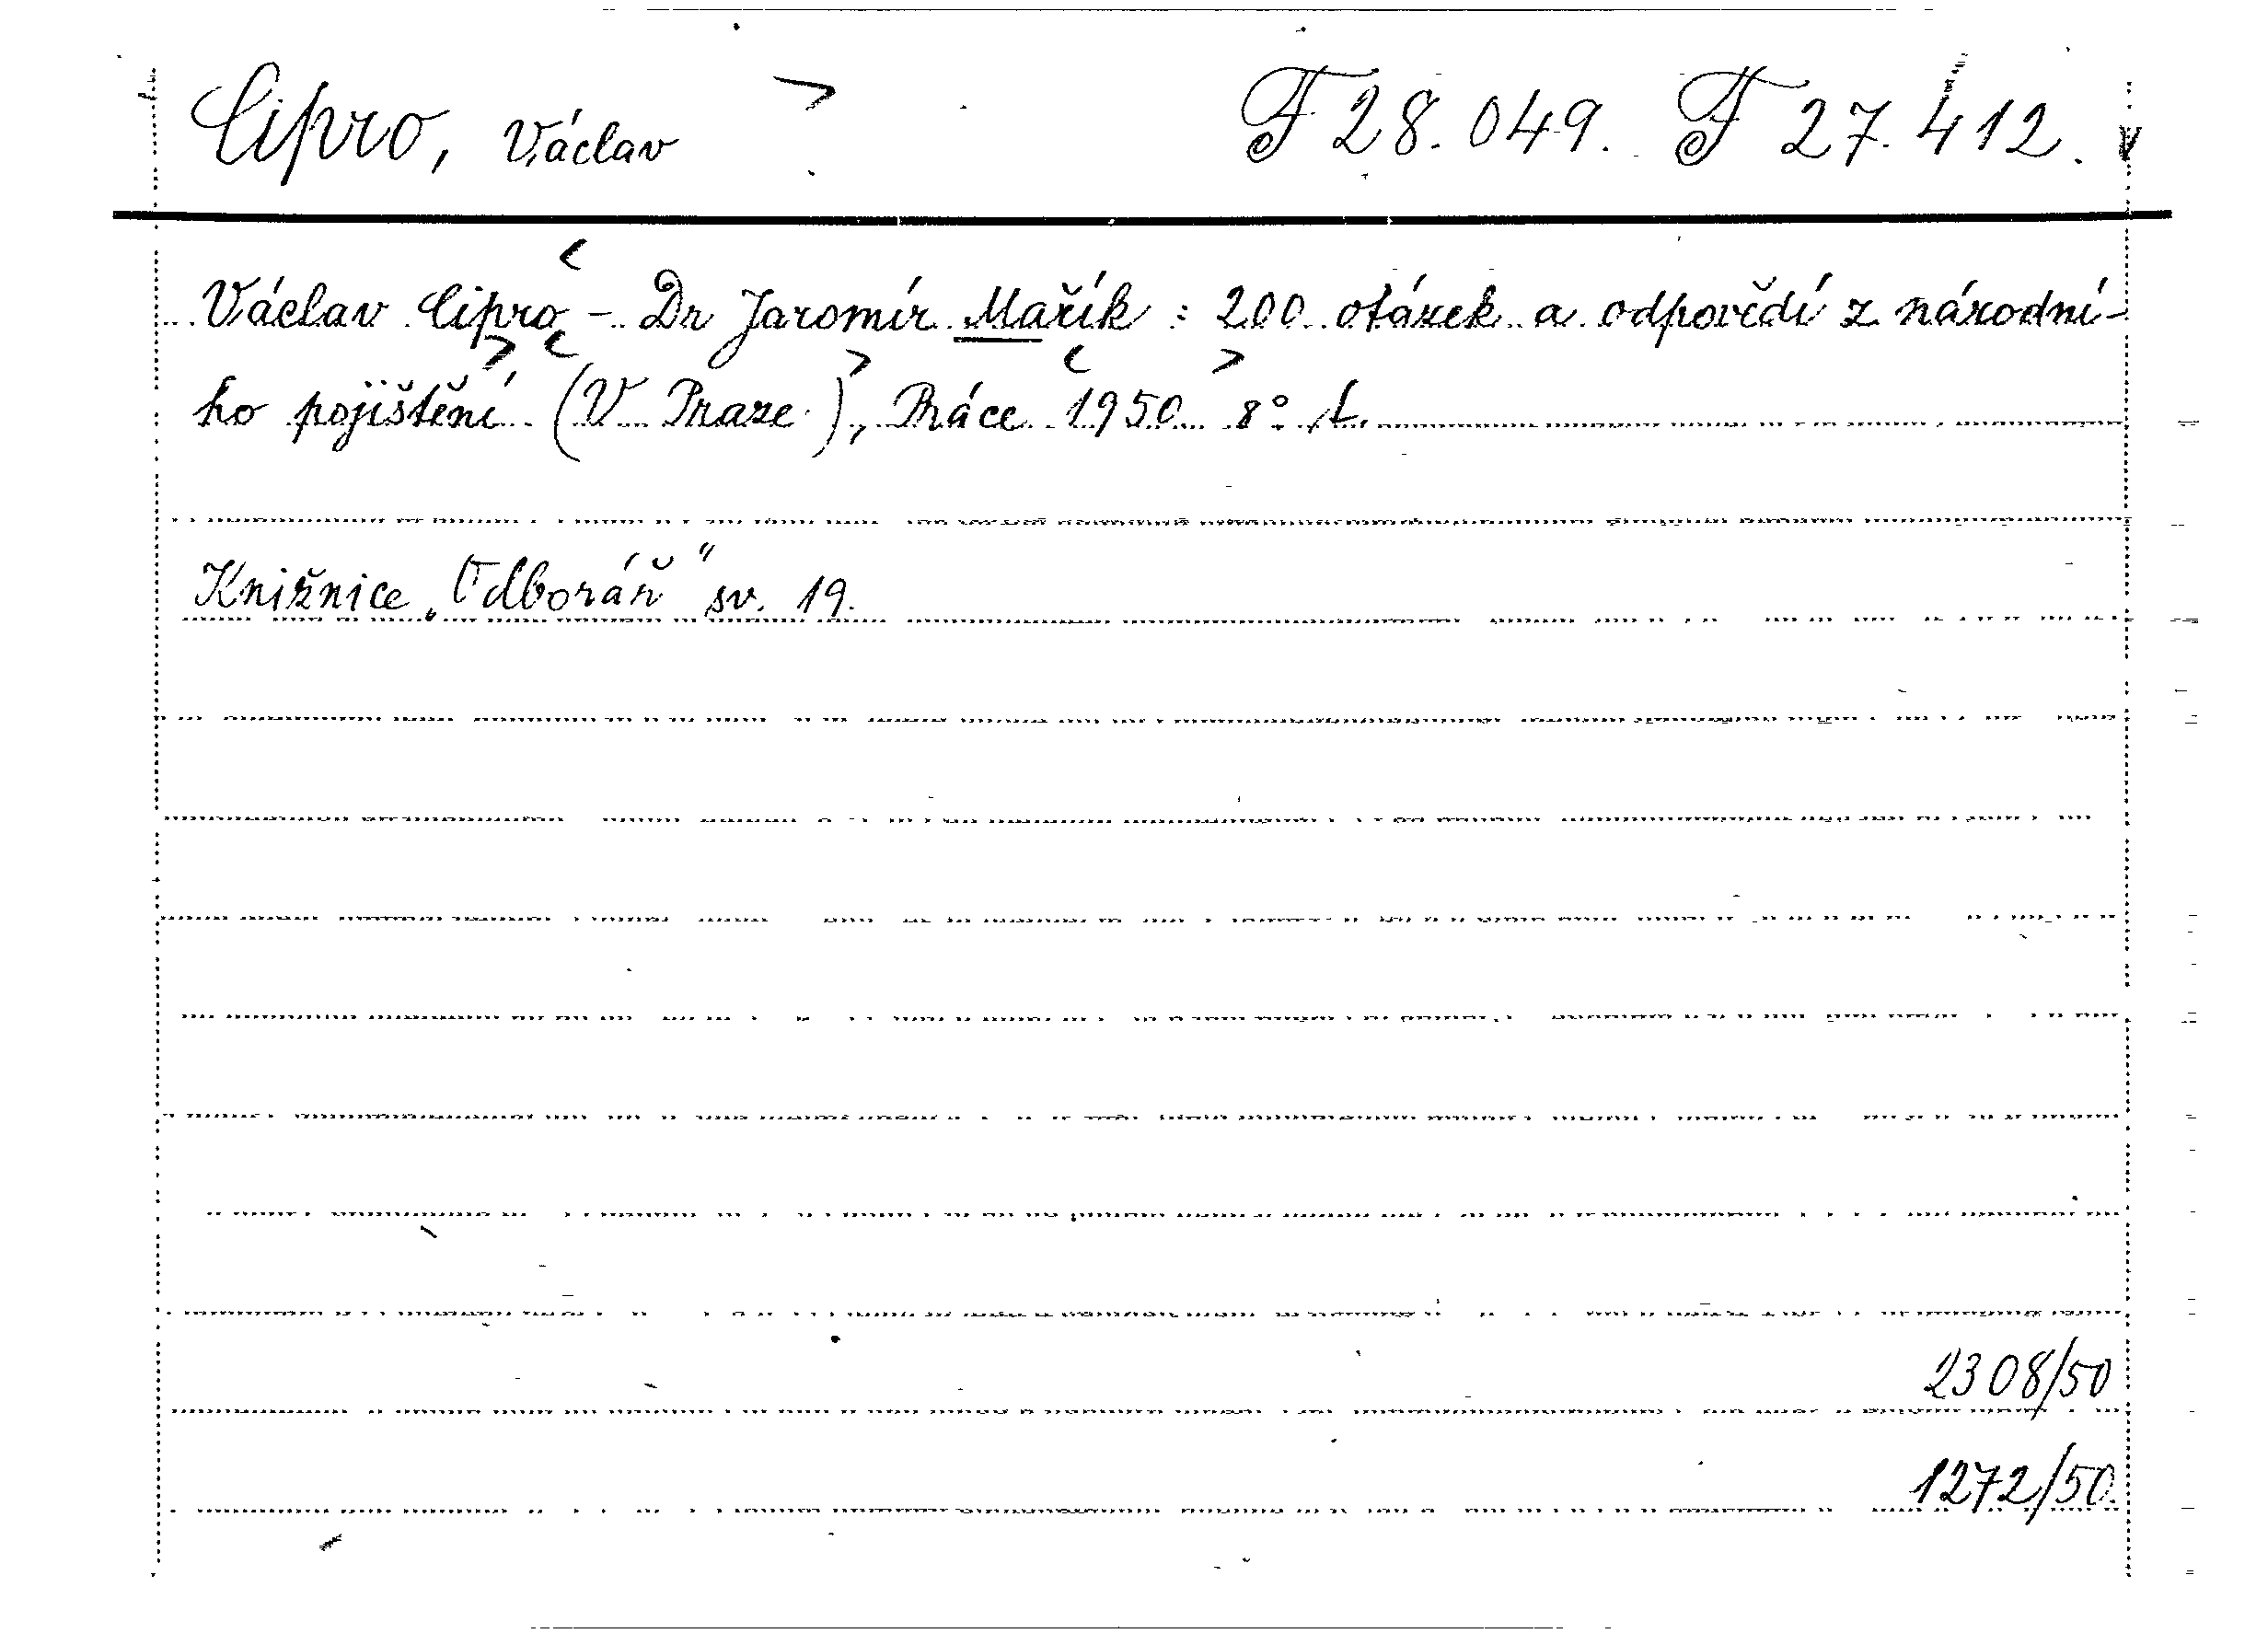 Cipro, Václav > F 28.049. F 27.412.
Václav Cipro - Dr Jaromír Mařík : 200 otázek a odpovědí z národní-
ho pojištění (V Praze), Práce 1950 8° /L.
Knižnice „Odborář“ sv. 19.
2308/50
1272/50.